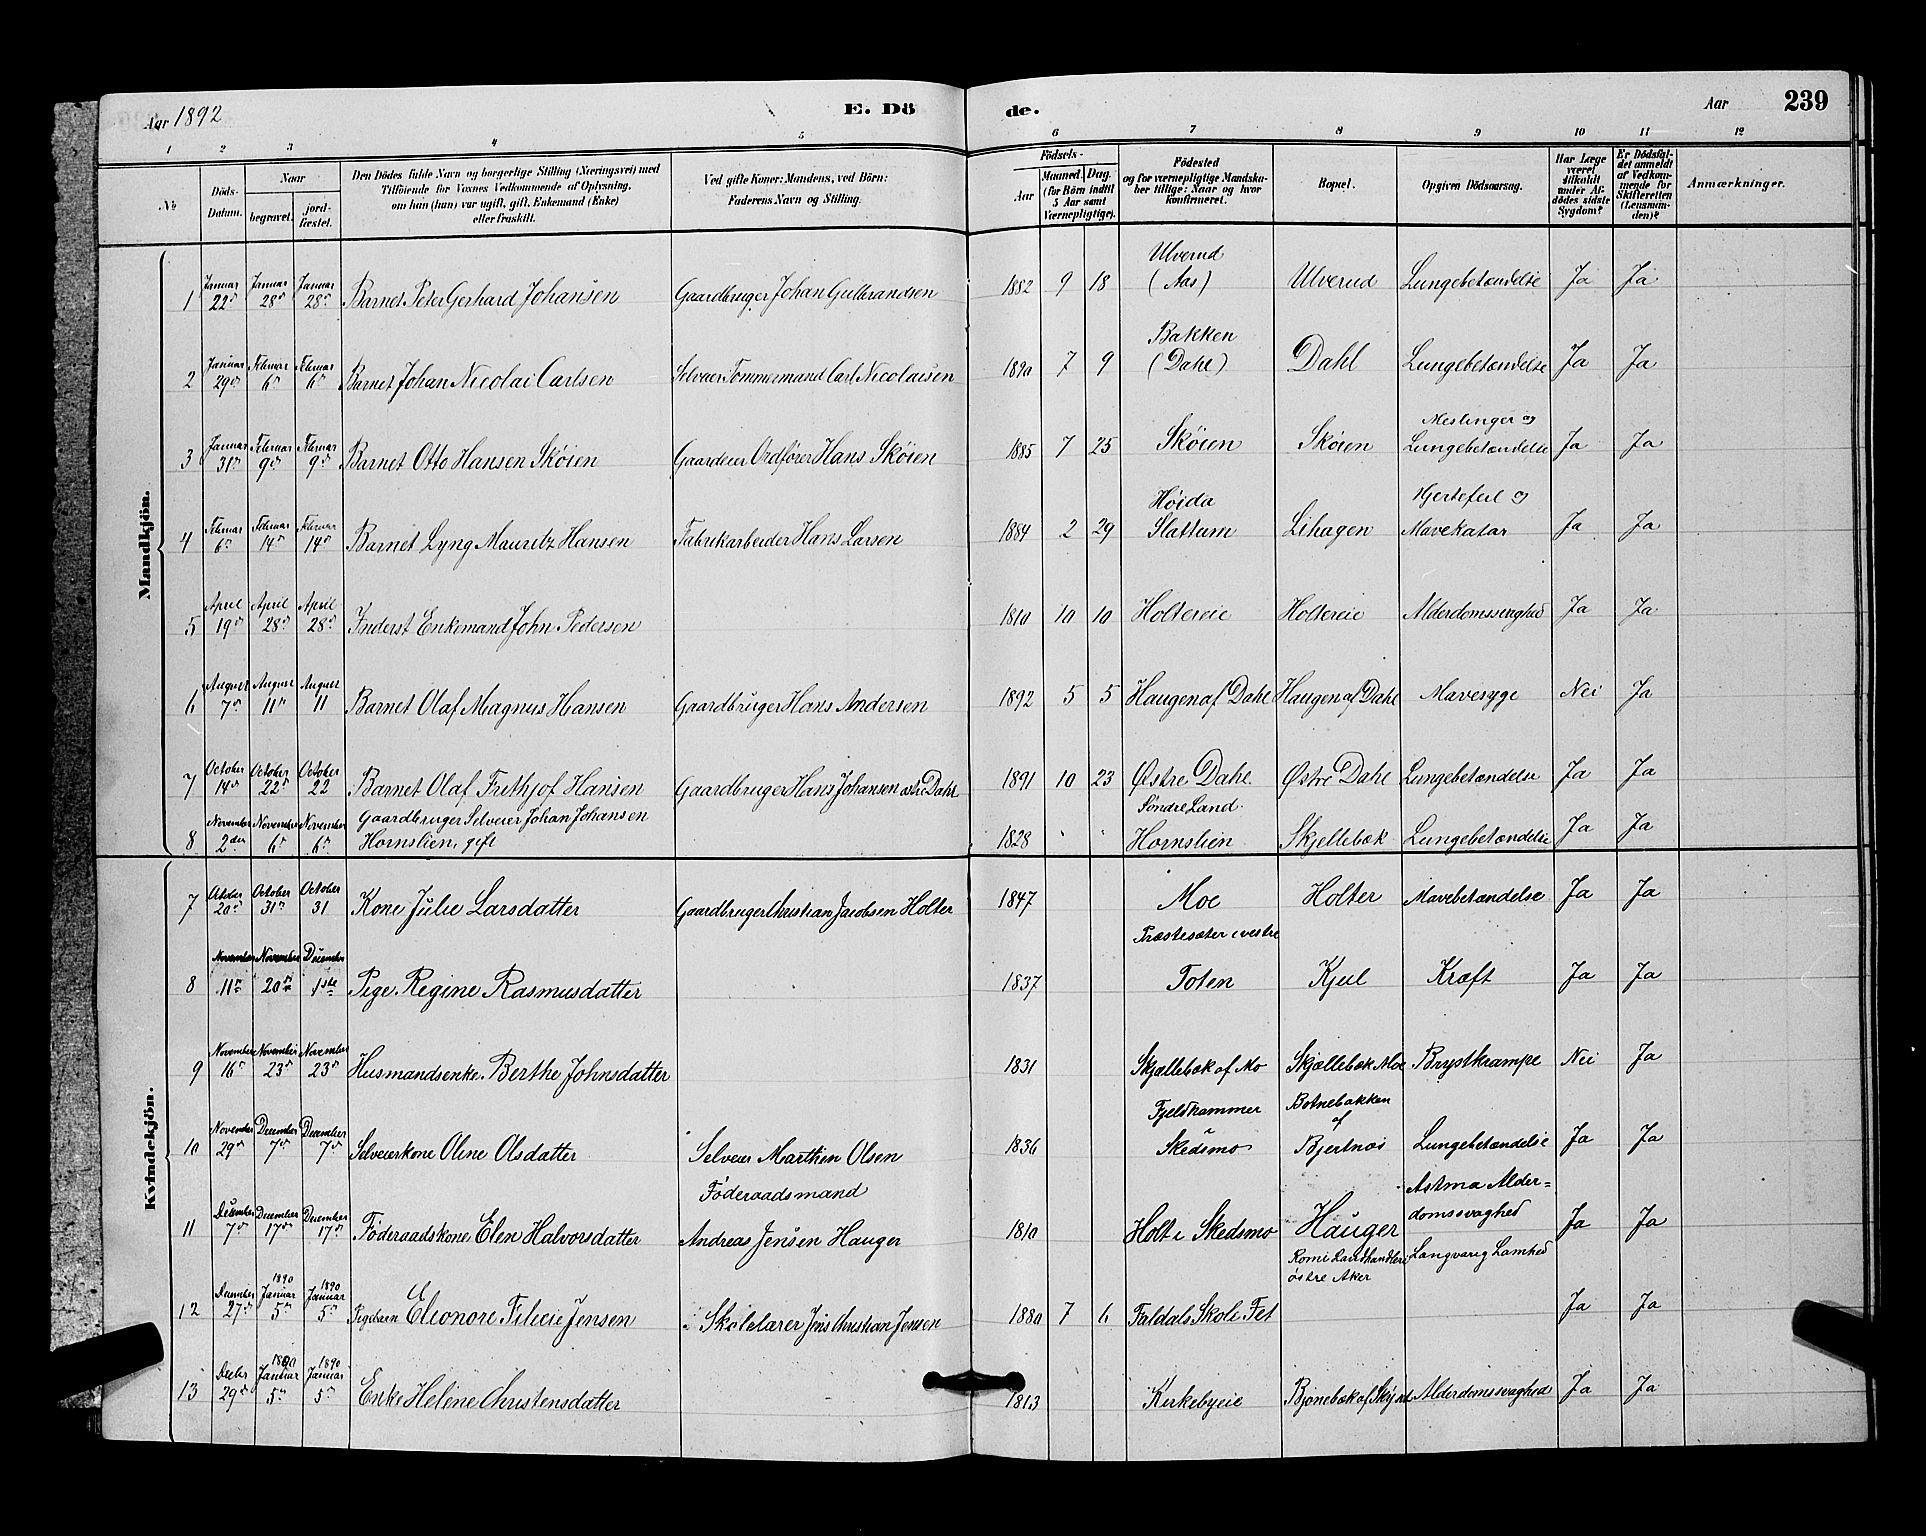 Aar 1892
E. Dö
de.
Aar 239
1 2 3 4 5 6 7 8 9 10 11 12
№ Döds-Datum. Naar begravet. jord-fæstet. Den Dödes fulde Navn og borgerlige Stilling (Næringsvei) med Tilföiende for Voxnes Vedkommende af Oplysning, om han (hun) var ugift, gift, Enkemand (Enke) eller fraskilt. Ved gifte Koner: Mandens, ved Börn: Faderens Navn og Stilling. Födsels- Aar Maaned. Dag. (for Börn indtil 5 Aar samt Værnepligtige). Födested og for værnepligtige Mandska-ber tillige: Naar og hvor konfirmeret. Bopæl. Opgiven Dödsaarsag. Har Læge været tilkaldt under Af-dödes sidste Sygdom? Er Dödsfal-det anmeldt af Vedkom-mende for Skifteretten (Lensman-den)? Anmærkninger.
Mandkjön.
1 Januar 22d Januar 28d Januar 28d Barnet Peter Gerhard Johansen Gaardbruger Johan Gulbrandsen 1882 9 18 Ulverud (Aas) Ulverud Lungebetændelse Ja Ja
2 Januar 29d Februar 6d Februar 6d Barnet Johan Nicolai Carlsen Selveier Tømmermand Carl Nicolaisen 1890 7 9 Bakken (Dahl) Dahl Lungebetændelse Ja Ja
3 Januar 31d Februar 9d Februar 9d Barnet Otto Hansen Skøien Gaardeier Ordfører Hans Skøien 1885 7 25 Skøien Skøien Meslinger og Lungebetændelse Ja Ja
4 Februar 6d Februar 14d Februar 14d Barnet Lyng Mauritz Hansen Fabrikarbeider Hans Larsen 1884 2 29 Høida Slattum Lihagen Hjertefeil og Mavekatar Ja Ja
5 April 19d April 28d April 28d Inderst Enkemand John Pedersen 1810 10 10 Holtereie Holtereie Alderdomssvaghed Ja Ja
6 August 7d August 11d August 11 Barnet Olaf Magnus Hansen Gaardbruger Hans Andersen 1892 5 5 Haugen af Dahl Haugen af Dahl Mavesyge Nei Ja
7 October 14d October 22d October 22 Barnet Olaf Frithjof Hansen Gaardbruger Hans Johansen østre Dahl 1891 10 23 Østre Dahl Østre Dahl Lungebetændelse Ja Ja
8 November 2den November 6d November 6d Gaardbruger Selveier Johan Johansen Hornslien, gift 1828 " " Søndre Land Hornslien Skjellebæk Lungebetændelse Ja Ja
Kvindekjön.
7 October 20d October 31d October 31 Kone Julie Larsdatter Gaardbruger Christian Jacobsen Holter 1847 Moe Holter Mavebetændelse Ja Ja
8 November 11d November 20d December 1ste Pige Regine Rasmusdatter 1837 Præstesæter i vestre Toten Kjul Kræft Ja Ja
9 November 16d November 23d November 23d Husmandsenke Berthe Johnsdatter 1831 Skjællebæk af Mo Skjællebæk Moe Brystkrampe Nei Ja
10 November 29d December 7d December 7d Selveierkone Oline Olsdatter Selveier Marthin Olsen 1836 Fjeldhammer Skedsmo Botnebakken af Bjertnæs Lungebetændelse Ja Ja
11 December 7d December 17d December 17d Føderaadskone Elen Halvorsdatter Føderaadsmand Andreas Jensen Hauger 1810 Holt i Skedsmo Hauger Astma Alder=domssvaghed Ja Ja
12 December 27d 1890 Januar 5d 1890 Januar 5d Pigebarn Eleonore Felicie Jensen Skolelærer Jens Christian Jensen 1880 7 6 Faldals Skole Fet Romi Landhandleri østre Aker Langvarig Lamhed Ja Ja
13 Decbr 29d 1890 Januar 5d 1890 Januar 5d Enke Helene Christensdatter 1813 Kirkebyeie Bjønebæk af Skyset Alderdomssvaghed Ja Ja